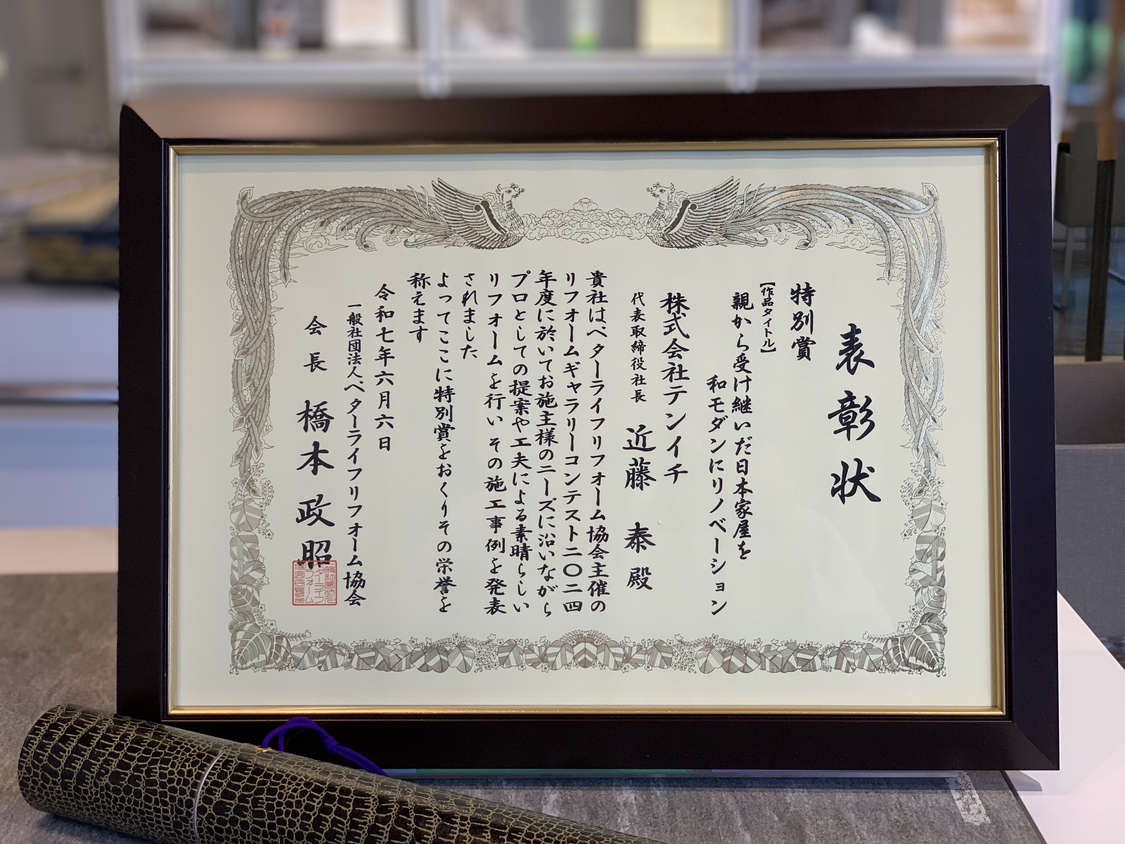 表彰状
特別賞
【作品タイトル】
親から受け継いだ日本家屋を
和モダンにリノベーション
株式会社テンイチ
代表取締役社長 近藤 泰 殿
貴社はベターライフリフォーム協会主催の
リフォームギャラリーコンテスト二〇二四
年度に於いてお施主様のニーズに沿いながら
プロとしての提案や工夫による素晴らしい
リフォームを行い その施工事例を発表
されました
よってここに特別賞をおくりその栄誉を
称えます
令和七年六月六日
一般社団法人ベターライフリフォーム協会
会長 橋本 政昭